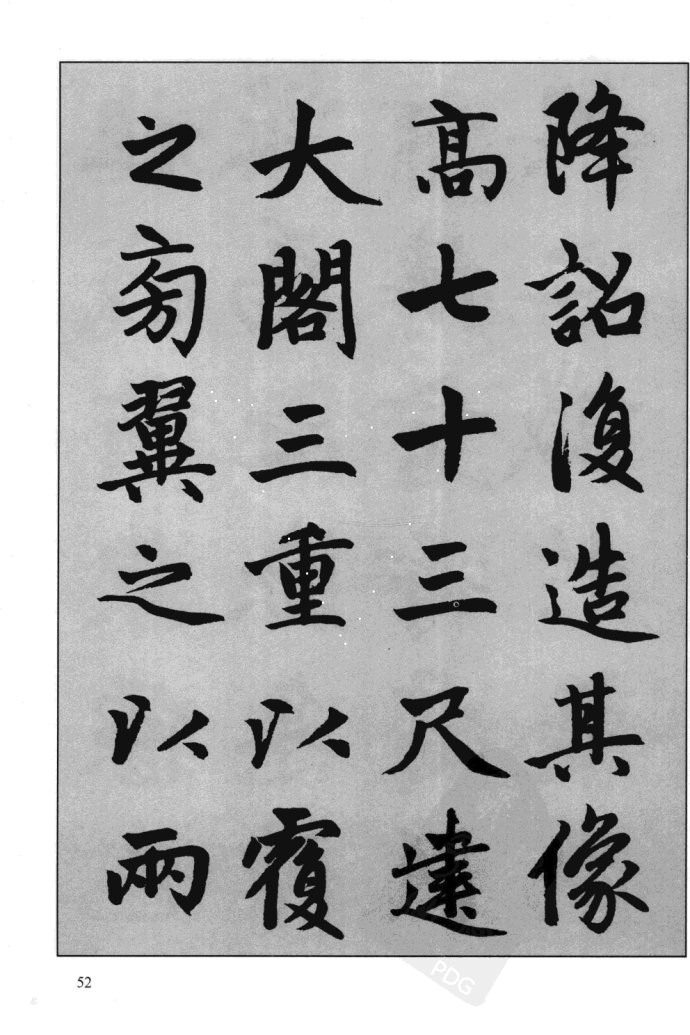 降詔復造其像
髙七十三尺建
大閣三重以覆
之旁翼之以兩
52
PDG